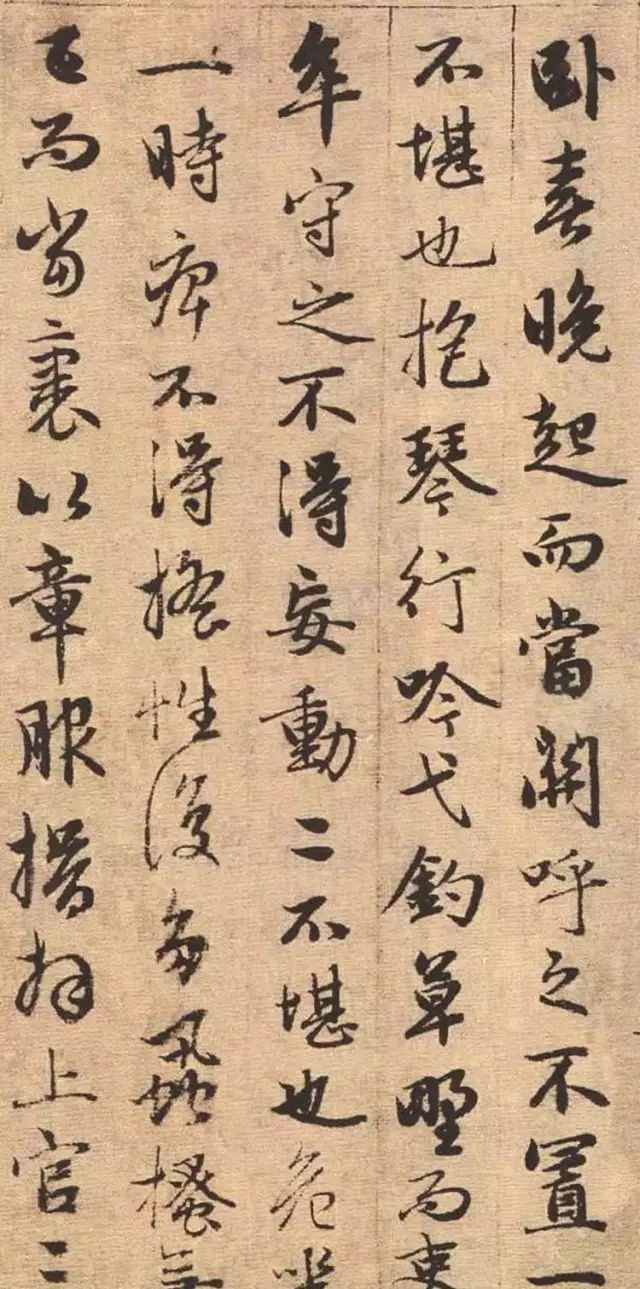 卧喜晚起而當關呼之不置一
不堪也抱琴行吟弋釣草野而吏
卒守之不得妄動二不堪也危坐
一時痺不得搖性復多蝨搔
已而當裹以章服揖拜上官三